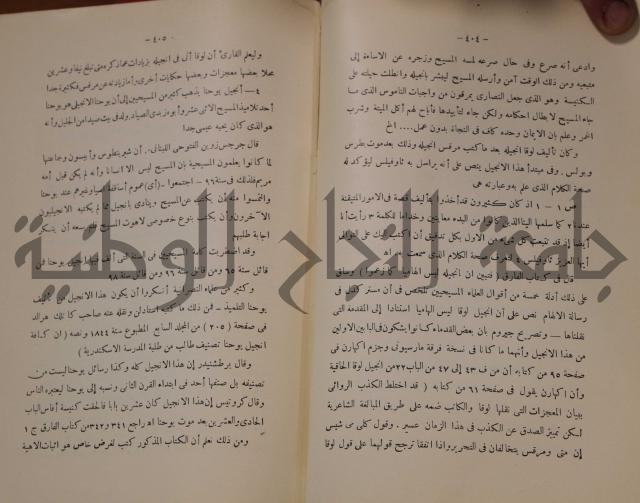 — ٤٠٤ —
وادعى أنه صرع وفى حال صرعه لمسه المسيح وزجره عن الاساءة إلى
متبعيه ومن ذلك الوقت آمن وأرسله المسيح ليبشر بانجيله وانطلت حيلته على
الكنيسة وهو الذى جعل النصارى يمرقون من واجبات الناموس الذى ما
جاء المسيح لابطال احكامه ولكن جاء لتأييدها فأباح لهم أكل الميتة وشرب
الخمر وعلم بأن الايمان وحده كاف فى النجاة بدون عمل.... الخ
وكان تأليف لوقا انجيله بعد ما كتب مرقس انجيله وذلك بعد موت بطرس
وبولس. وفى مبتدأ هذا الانجيل ينص على أنه يراسل به ثاوفيلس ليؤكد له
صحة الكلام الذى علم به وعبارته هى
ص ١ — ١ اذ كان كثيرون قد أخذوا بتأليف قصة فى الامور المتيقنة
عندنا ٢ كما سلمها الينا الذين كانوا من البدء معاينين وخداما للكلمة ٣ رأيت أنا
أيضا إذ قد تتبعت كل شىء من الاول بتدقيق أن أكتب اليك على التوالى
أيها العزيز ثاوفيلس ٤ لتعرف صحة الكلام الذى علمت به اه
قال فى كتاب الفارق (فتبين ان انجيله ليس إلهاميا كما زعموا) وساق
على ذلك أدلة خمسة من أقوال العلماء المسيحيين ملخص فى أن مستر كدل فى
رسالة الالهام نص على أن انجيل لوقا ليس الهاميا استنادا إلى المقدمة التى
نقلناها — وتصريح جيروم بان بعض القدماء كانوا يشكون فى البابين الاولين
من هذا الانجيل وأنهما ما كانا فى نسخة فرقة مارسيونى وجزم اكهارن فى
صفحة ٩٥ من كتابه أن من ف ٤٣ إلى ٤٧ من الباب ٢٢ من انجيل لوقا الحاقية
وأن اكهارن يقول فى صفحة ٦١ من كتابه (قد اختلط الكذب الروائى
ببيان المعجزات التى نقلها لوقا والكاتب ضمه على طريق المبالغة الشاعرية
لكن تمييز الصدق عن الكذب فى هذا الزمان عسير. وقول كلى مى شيس
إن متى ومرقس يتخالفان فى التحرير واذا اتفقا ترجح قولهما على قول لوقا
— ٤٠٥ —
وليعلم القارئ أن لوقا أتى فى انجيله بزيادات عما ذكره متى تبلغ نيفا وعشرين
محلا بعضها معجزات وبعضها حكايات أخرى، أما زيادته عن مرقس فكثيرة جدا
٤ — أنجيل يوحنا يذهب كثير من المسيحيين إلى أن يوحنا الانجيلى هو يوحنا
أحد تلاميذ المسيح الاثنى عشر وأبوه زبدى الصياد ولد فى بيت صيدا من الجليل وأنه
هو الذى كان يحبه عيسى جدا
قال جرجس زوين الفتوحى اللبنانى. أن شيرينطوس وأبيسون وجماعتهما
لما كانوا يعلمون المسيحية بان المسيح ليس الا انسانا وأنه لم يكن قبل أمه
مريم فلذلك فى سنة ٩٦ — اجتمعوا — (أى) عموم أساقفة أسيا وغيرهم عند يوحنا
والتمسوا منه أن يكتب عن المسيح وينادى بانجيل مما لم يكتبه الانجيليون
الآخرون وأن يكتب بنوع خصوصى لاهوت المسيح فلم يسعه أن ينكر
اجابة طلبهم
وقد اضطربت كلمة المسيحيين فى السنة التى ألف فيها انجيل يوحنا فمن
قائل سنة ٦٥ ومن قائل سنة ٩٦ ومن قائل سنة ٩٨
وكثير من علماء النصرانية أنكروا أن يكون هذا الانجيل من تأليف
يوحنا التلميذ — فمن ذلك ما كتبه استادلن ونقله عنه صاحب كاتلك هرلد
فى صفحة (٢٠٥) من المجلد السابع المطبوع سنة ١٨٤٤ ونصه (ان كافة
انجيل يوحنا تصنيف طالب من طلبة المدرسة الاسكندرية)
وقال برطشنيدر إن هذا الانجيل كله وكذا رسائل يوحنا ليست من
تصنيفه بل صنفها أحد فى ابتداء القرن الثانى ونسبه إلى يوحنا ليعتبره الناس
وقال كروتيس إن هذا الانجيل كان عشرين بابا فالحقت كنيسة أفاس الباب
الحادى والعشرين بعد موت يوحنا اه راجع ٣٤١ و ٣٤٢ من كتاب الفارق ج ١
ومن ذلك نعلم أن الكتاب المذكور كتب لغرض خاص هو اثبات الاهية
جامعة النجاح الوطنية